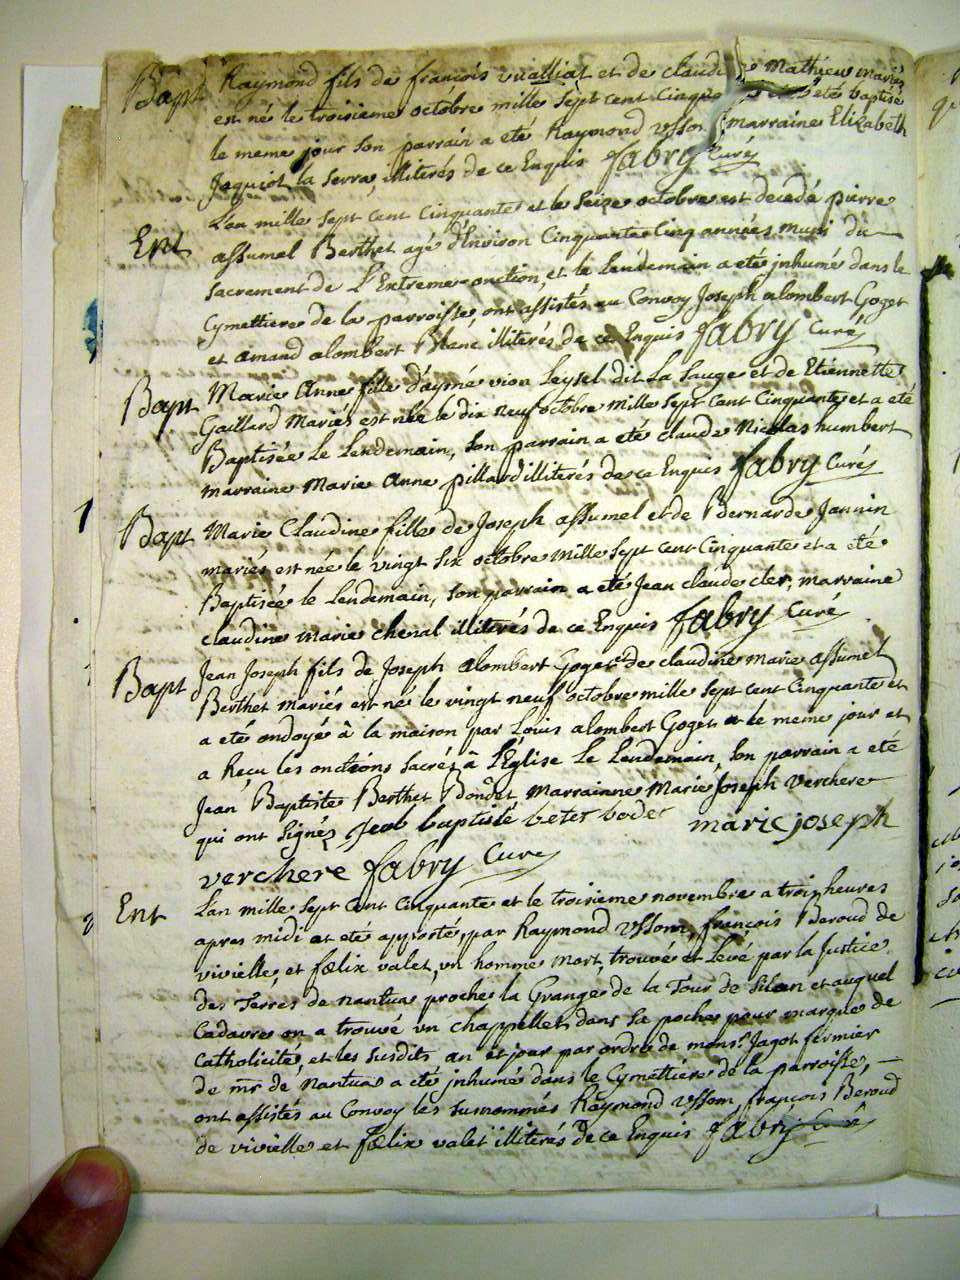 Bapt Raymond fils de françois vualliat et de claudine Mathieu mariés
est né le troisieme octobre mille sept cent Cinquante été baptisé
le meme jour son parrain a eté Raymond Vsson marraine Elizabeth
Joquiot la serra, illiterés de ce Enquis fabry Curé
Ent L'an mille sept cent Cinquante et le seize octobre est decedé pierre
assumel Berthet agé d'Environ Cinquante Cinq années muni du
sacrement de L'Extreme onction, et le Lendemain a eté jnhumé dans le
Cymettiere de la parroisse ont assistés au Convoy Joseph alombert Goget
et amand alombert Blanc illiterés de ce Enquis fabry Curé
Bapt Marie Anne fille d'aymé vion Leysel dit La sauge et de Etiennette
Gaillard Mariés est née le dix neuf octobre mille sept cent Cinquante et a eté
Baptisée Le Lendemain, son parrain a eté claude Nicolas humbert
marraine Marie Anne pillard illiterés de ce Enquis fabry Curé
1
Bapt Marie Claudine fille de Joseph assumel et de Bernarde Jannin
mariés est née le vingt six octobre mille sept cent Cinquante et a eté
Baptisée le Lendemain, son parrain a eté Jean claude cler, marraine
claudine marie cheval illiterés de ce Enquis fabry Curé
Bapt Jean Joseph fils de Joseph alombert Goget et de claudine marie assumel
Berthet mariés est né le vingt neuf octobre mille sept cent Cinquante et
a eté ondoyé à la maison par Louis alombert Goget le meme jour et
a Reçu les onctions sacrés à L'Eglise Le Lendemain, son parrain a eté
Jean Baptiste Berthet Bondet, Marrainne Marie Joseph Verchere
qui ont signés baptiste marie joseph
verchere fabry Curé
Ent L'an mille sept cent Cinquante et le troisieme novembre a trois heures
apres midi at eté apporté, par Raymond Vsson, françois Beroud de
vivielle, et fœlix valet, vn homme mort, trouvé et Levé par la Justice
des Terres de nantua proche la Grange de la Tour de Silan et auquel
Cadavre on a trouvé vn chappellet dans sa poche pour marque de
Catholicité, et les susdits an et jour par ordre de monsr. Jagot fermier
de mr. de Nantua a eté jnhumé dans le Cymettiere de la parroisse,
ont assistés au Convoy les surnommés Raymond Vsson, françois Beroud
de vivielle et fœlix valet illiterés de ce Enquis fabry Curé